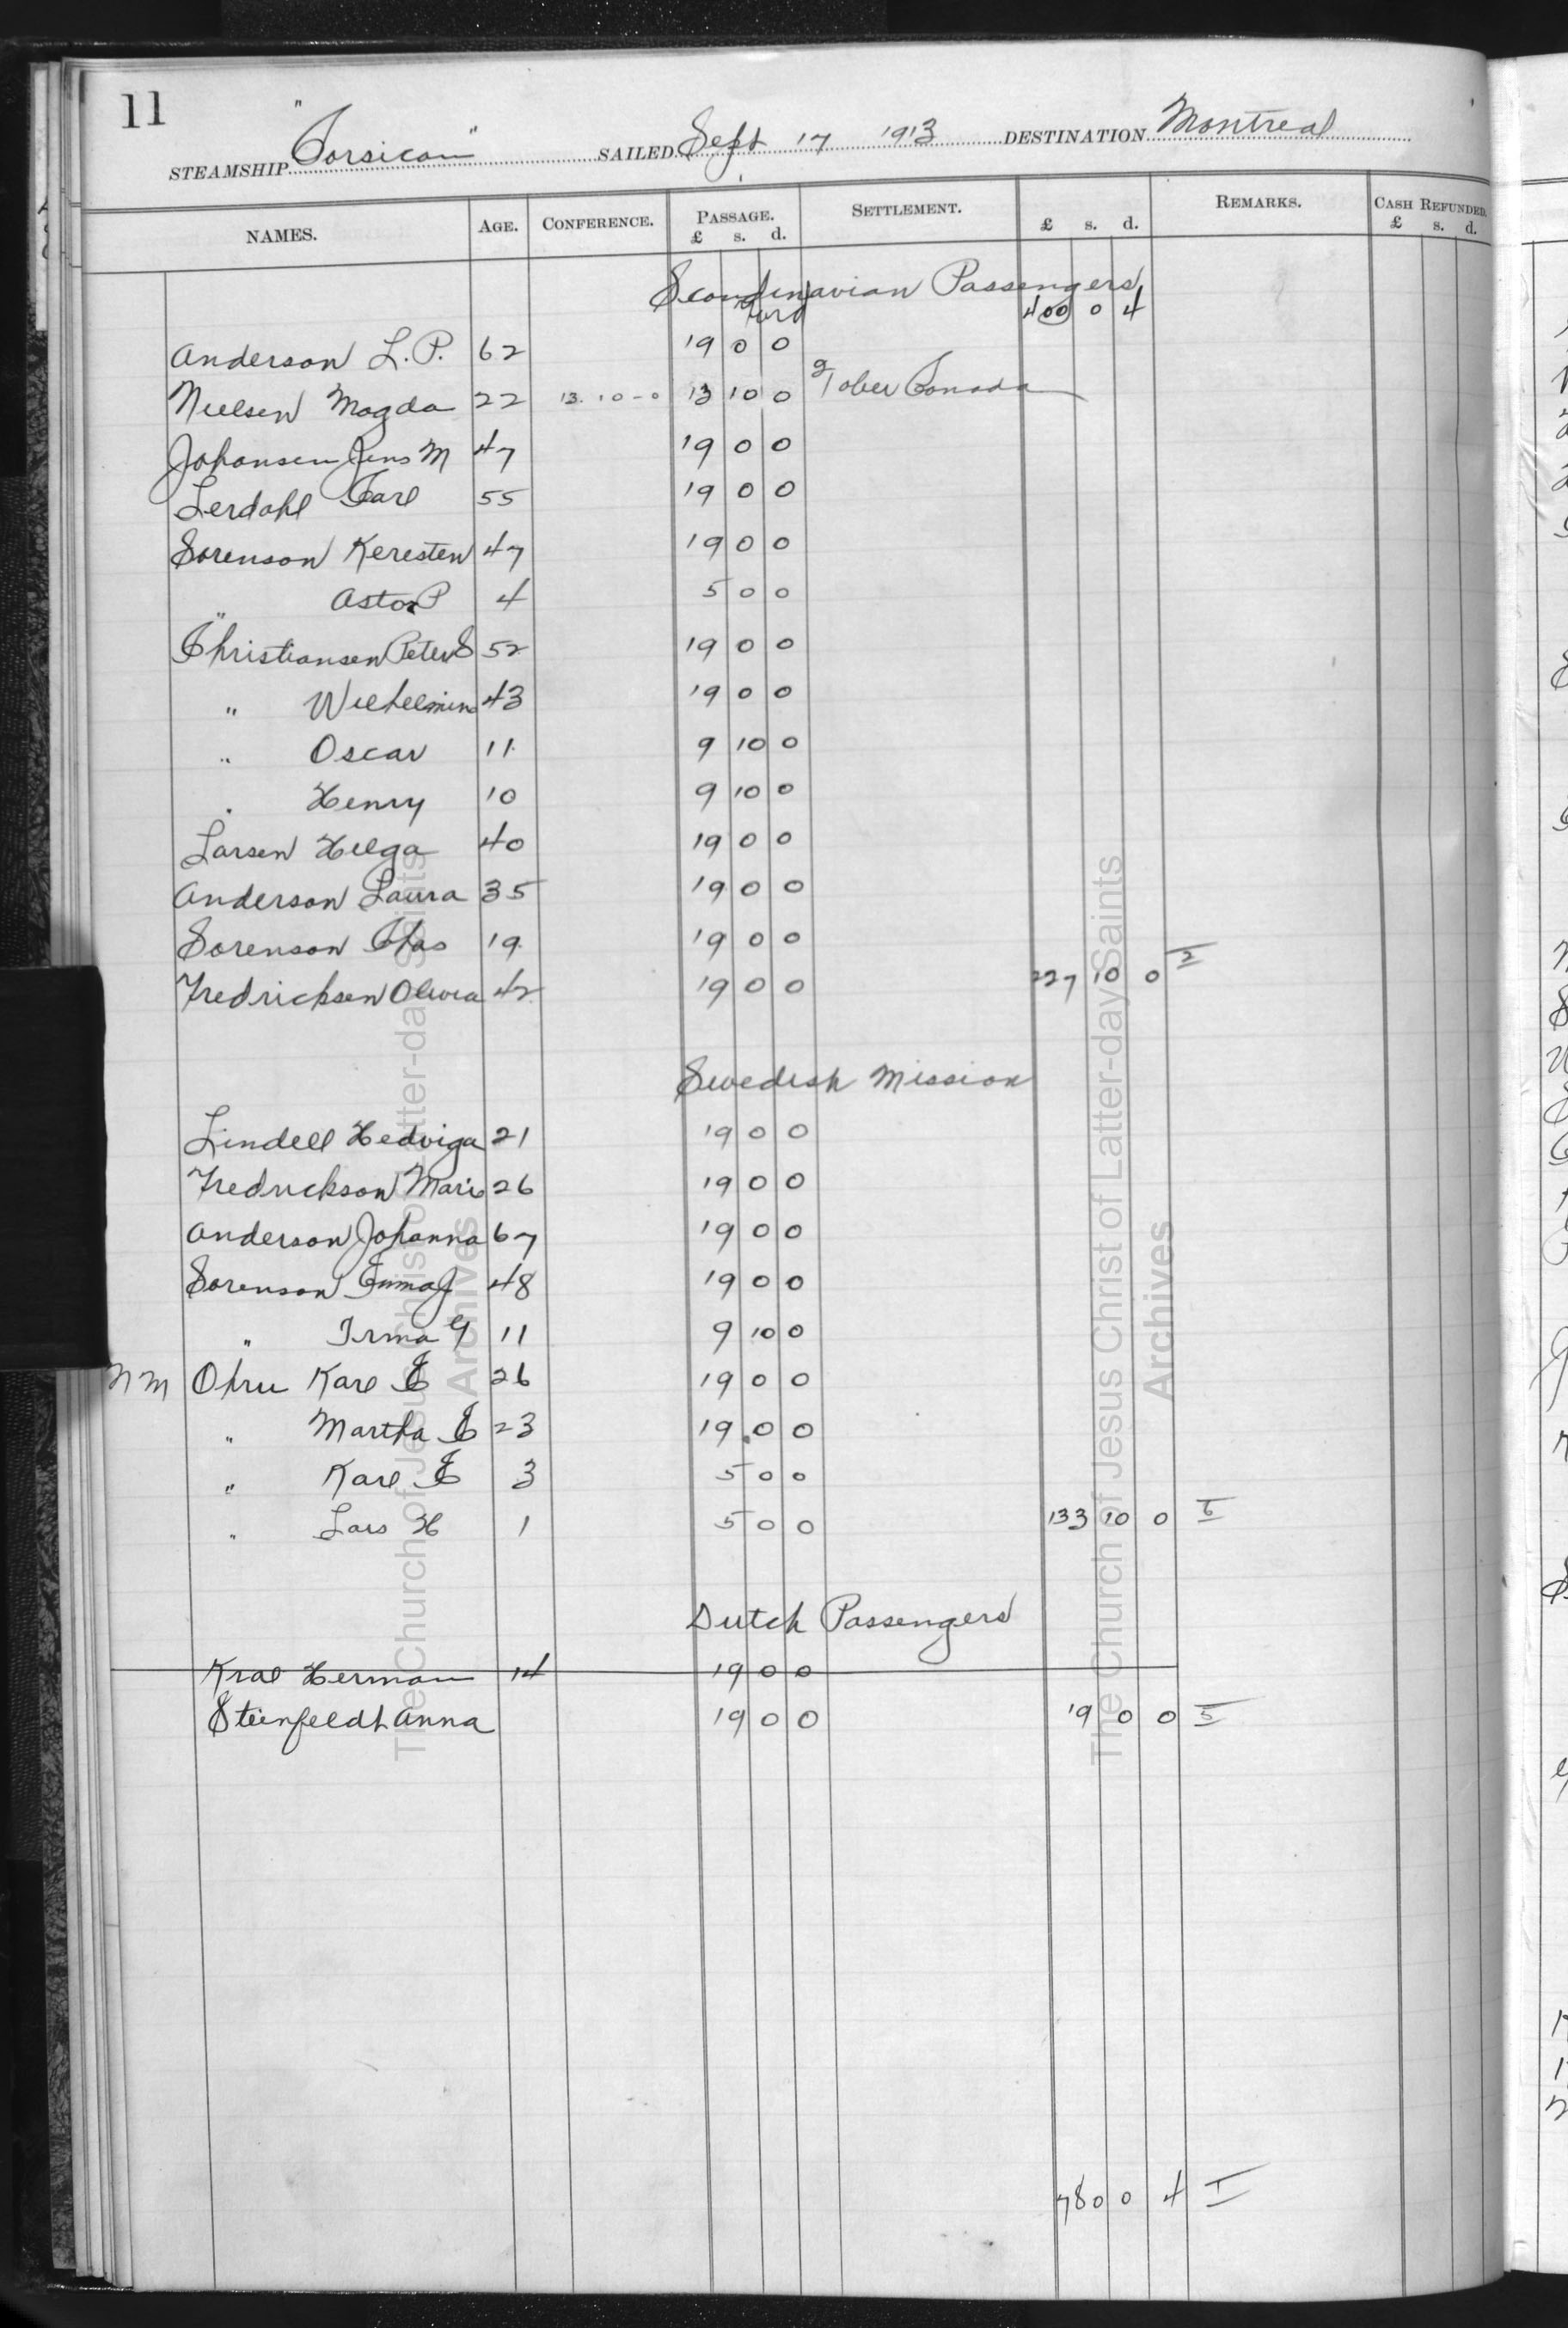 11
STEAMSHIP "Corsican" SAILED Sept 17 1913 DESTINATION Montreal
NAMES. AGE. CONFERENCE. PASSAGE. £ s. d. SETTLEMENT. £ s. d. REMARKS. CASH REFUNDED. £ s. d.
Scandinavian Passengers
400 0 4
Anderson L. P. 62 19 0 0
Nielsen Magda 22 13 10 - 0 13 10 0 Taber Canada
Johansen Jens M 47 19 0 0
Lerdahl Carl 55 19 0 0
Sorenson Keresten 47 19 0 0
" Astor P 4 5 0 0
Christiansen Peter S 52 19 0 0
" Wilhelmin 43 19 0 0
" Oscar 11 9 10 0
" Henry 10 9 10 0
Larsen Helga 40 19 0 0
Anderson Laura 35 19 0 0
Sorenson Chas 19 19 0 0
Fredricksen Olivia 42 19 0 0 227 10 0 2
Swedish Mission
Lindell Hedviga 21 19 0 0
Fredrickson Marie 26 19 0 0
Anderson Johanna 67 19 0 0
Sorenson Emma J 48 19 0 0
" Irma G 11 9 10 0
N M Ohru Karl E 26 19 0 0
" Martha E 23 19 0 0
" Karl E 3 5 0 0
" Lars H 1 5 0 0 133 10 0 6
Dutch Passengers
Kral Herman 14 19 0 0
Steinfeldt Anna 19 0 0 19 0 0 5
780 0 4 I
The Church of Jesus Christ of Latter-day Saints
Archives
The Church of Jesus Christ of Latter-day Saints
Archives